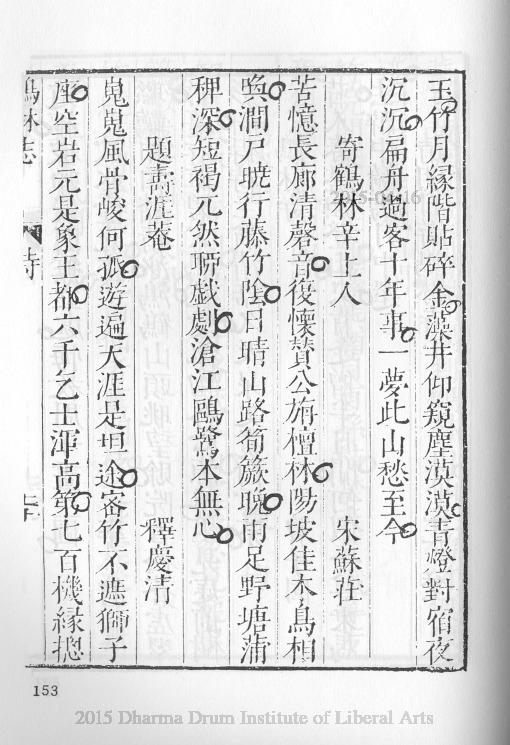 玉竹月緣階貼碎金藻井仰窺塵漠漠青燈對宿夜
沉沉扁舟過客十年事一夢此山愁至今
寄鶴林辛上人 宋蘇莊
苦憶長廊清磬音復懷贊公旃檀林陽坡佳木鳥相
喚澗戸曉行藤竹陰日晴山路筍蕨晚雨足野塘蒲
稗深短褐兀然聊戯劇滄江鷗鷺本無心
題壽涯菴 釋慶清
嵬嵬風骨峻何孤遊遍天涯是坦途密竹不遮獅子
座空岩元是象王都六千乞士渾高第七百機緣揔
林志 詩
153
2015 Dharma Drum Institute of Liberal Arts